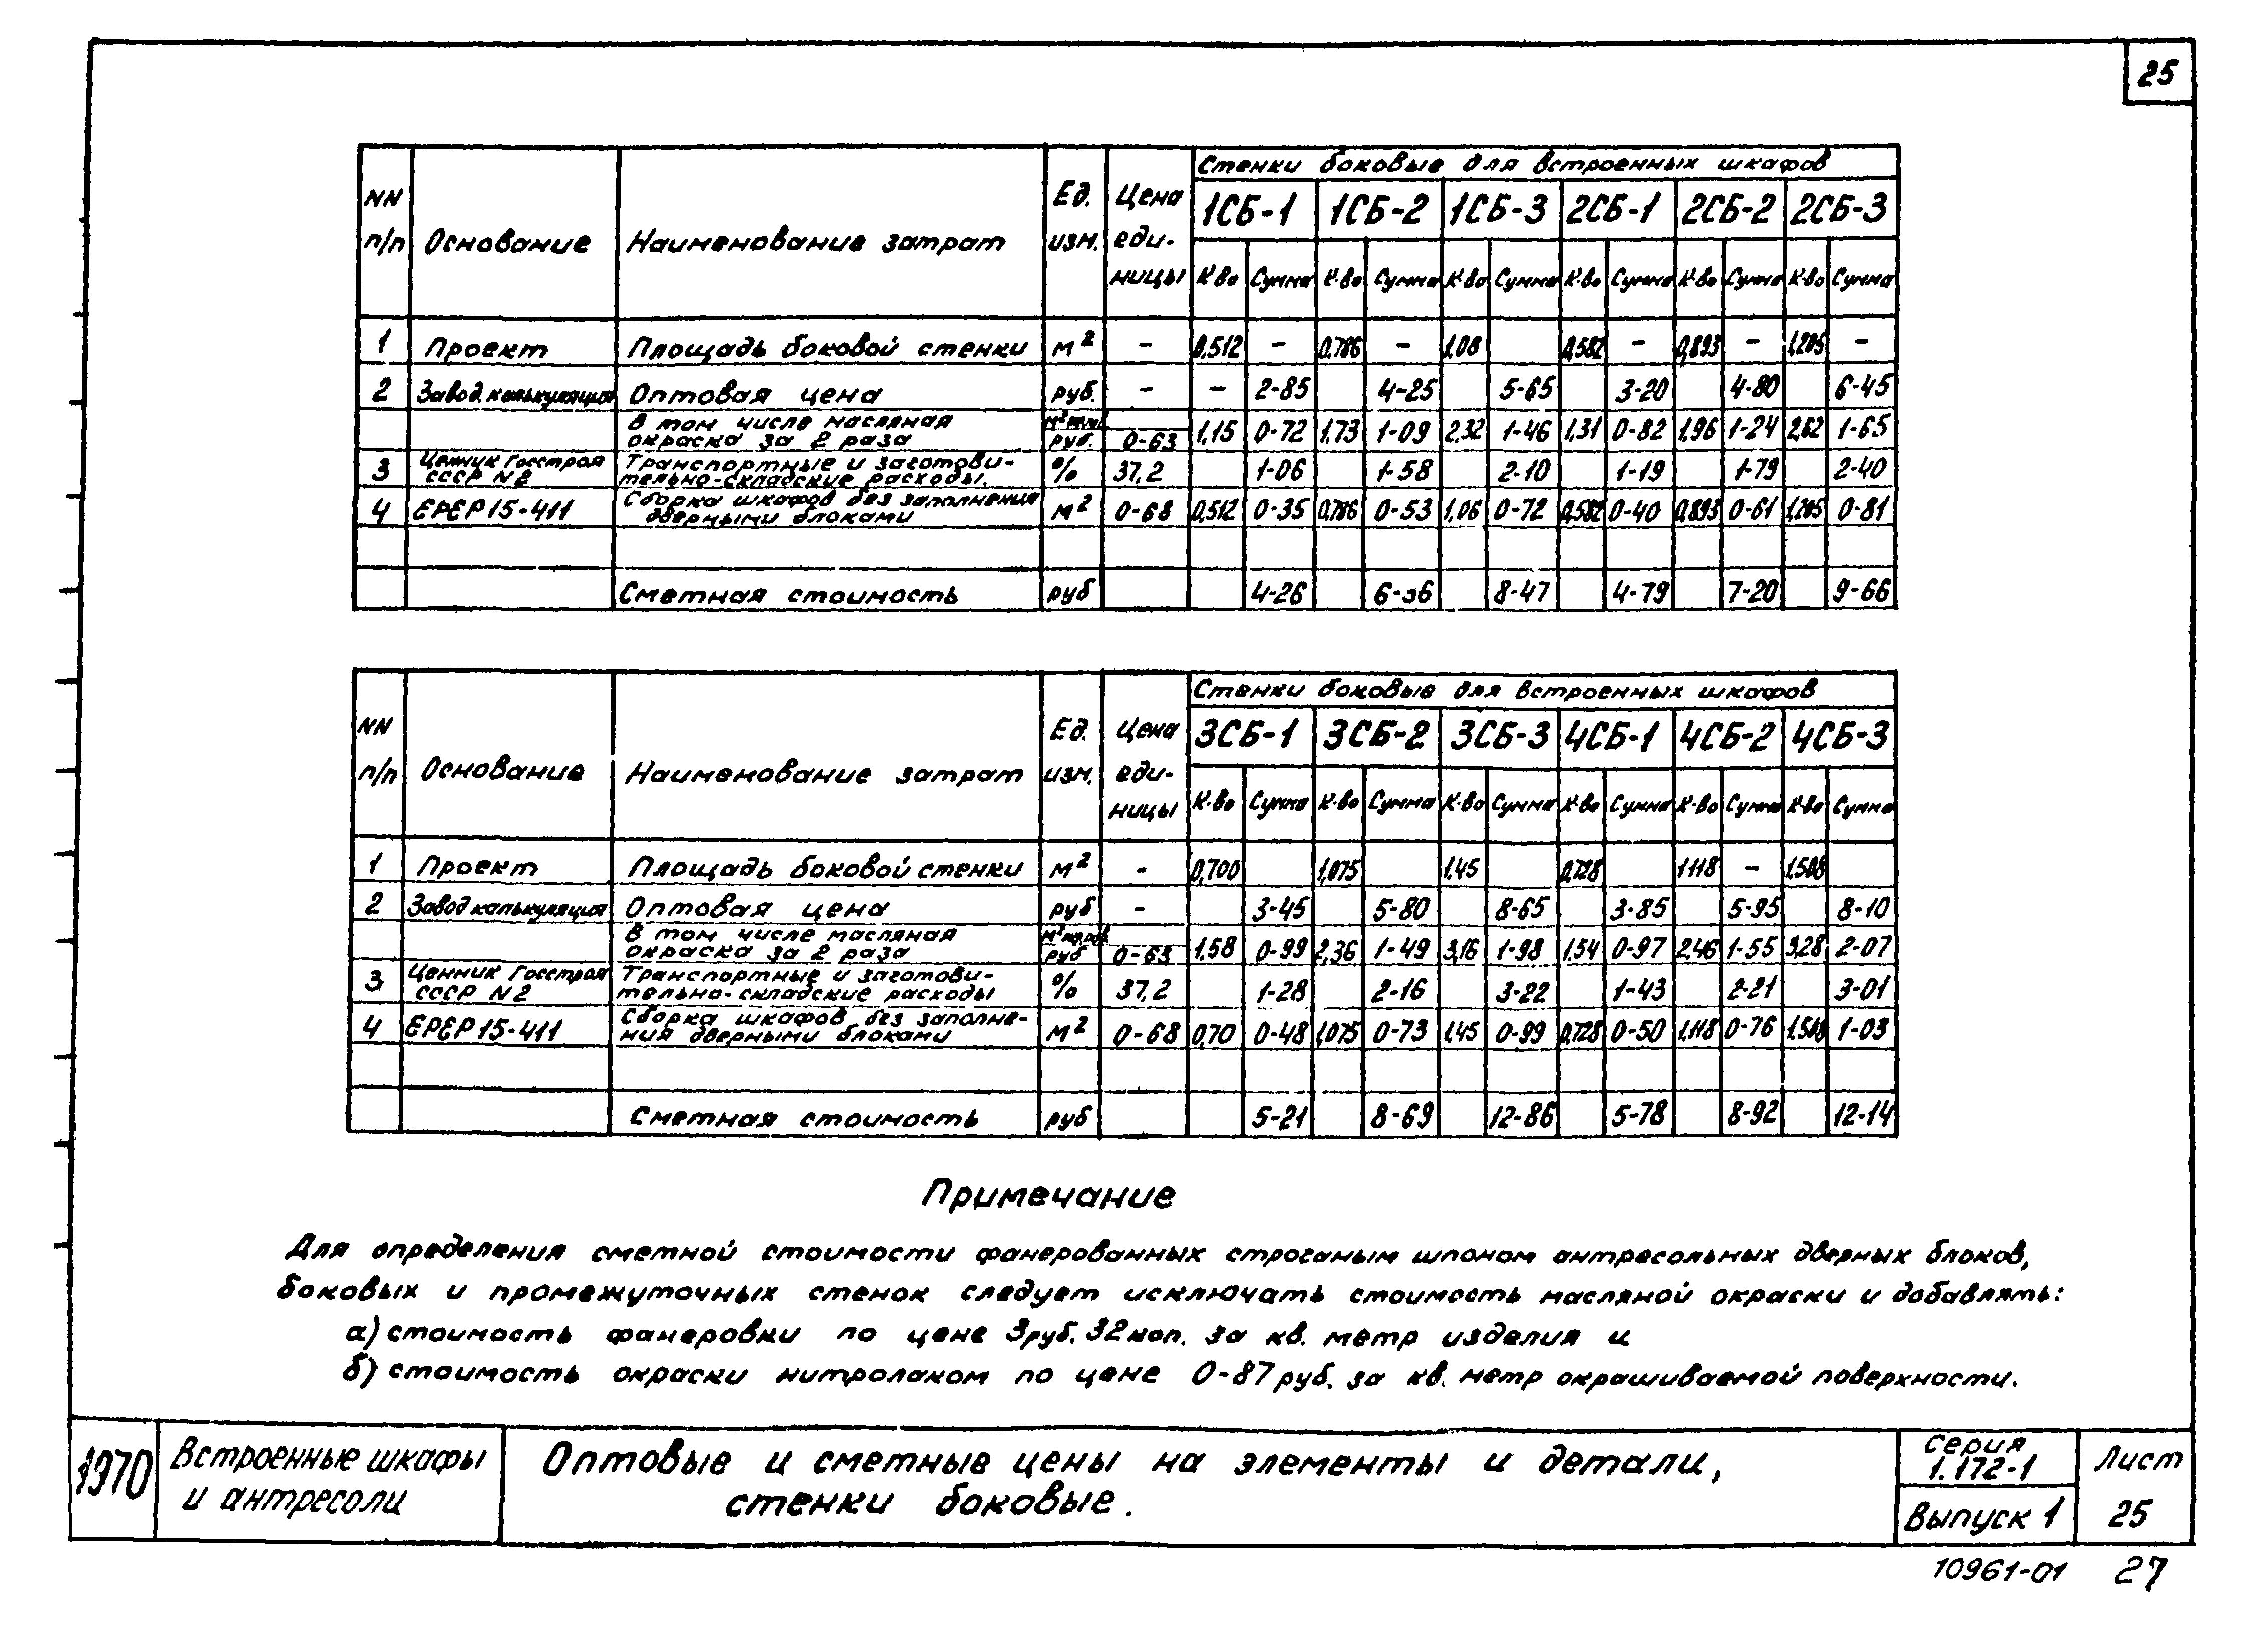 25
Стенки боковые для встроенных шкафов
NN п/п Основание Наименование затрат Ед. изм. Цена еди- ницы 1СБ-1 1СБ-2 1СБ-3 2СБ-1 2СБ-2 2СБ-3
К-во Сумма К-во Сумма К-во Сумма К-во Сумма К-во Сумма К-во Сумма
1 Проект Площадь боковой стенки м² – 0,512 – 0,786 – 1,08 0,582 – 0,893 – 1,205 –
2 Завод. калькуляция Оптовая цена руб. – – 2-85 4-25 5-65 3-20 4-80 6-45
В том числе масляная
окраска за 2 раза руб. 0-63 1,15 0-72 1,73 1-09 2,32 1-46 1,31 0-82 1,96 1-24 2,62 1-65
3 Ценник Госстроя Транспортные и заготови-
СССР N2 тельно-складские расходы. % 37,2 1-06 1-58 2-10 1-19 1-79 2-40
4 ЕРЕР 15-411 Сборка шкафов без заполнения
дверными блоками м² 0-68 0,512 0-35 0,786 0-53 1,06 0-72 0,582 0-40 0,893 0-61 1,205 0-81
Сметная стоимость руб 4-26 8-47 4-79 7-20 9-66
Стенки боковые для встроенных шкафов
NN п/п Основание Наименование затрат Ед. изм. Цена еди- ницы 3СБ-1 3СБ-2 3СБ-3 4СБ-1 4СБ-2 4СБ-3
К-во Сумма К-во Сумма К-во Сумма К-во Сумма К-во Сумма К-во Сумма
1 Проект Площадь боковой стенки м² - 0,700 1,075 1.45 0,728 1.118 – 1.508
2 Завод калькуляция Оптовая цена руб - 3-45 5-80 8-65 3-85 5-95 8-10
В том числе масляная
окраска за 2 раза руб 0-63 1,58 0-99 2,36 1-49 3,16 1-98 1.54 0-97 2.46 1-55 3,28 2-07
3 Ценник Госстроя Транспортные и заготови-
СССР N2 тельно-складские расходы % 37,2 1-28 2-16 3-22 1-43 2-21 3-01
4 ЕРЕР 15-411 Сборка шкафов без заполне-
ния дверными блоками м² 0-68 0,70 0-48 1,075 0-73 1,45 0-99 0,728 0-50 1,118 0-76 1,508 1-03
Сметная стоимость руб 5-21 8-69 12-86 5-78 8-92 12-14
Примечание
Для определения сметной стоимости фанерованных строганым шпоном антресольных дверных блоков,
боковых и промежуточных стенок следует исключать стоимость масляной окраски и добавлять:
а) стоимость фанеровки по цене 3руб. 32коп. за кв. метр изделия и
б) стоимость окраски нитролаком по цене 0-87 руб. за кв. метр окрашиваемой поверхности.
1970 Встроенные шкафы
и антресоли
Оптовые и сметные цены на элементы и детали,
стенки боковые.
Серия
1.172-1
Выпуск 1
Лист
25
10961-01 27